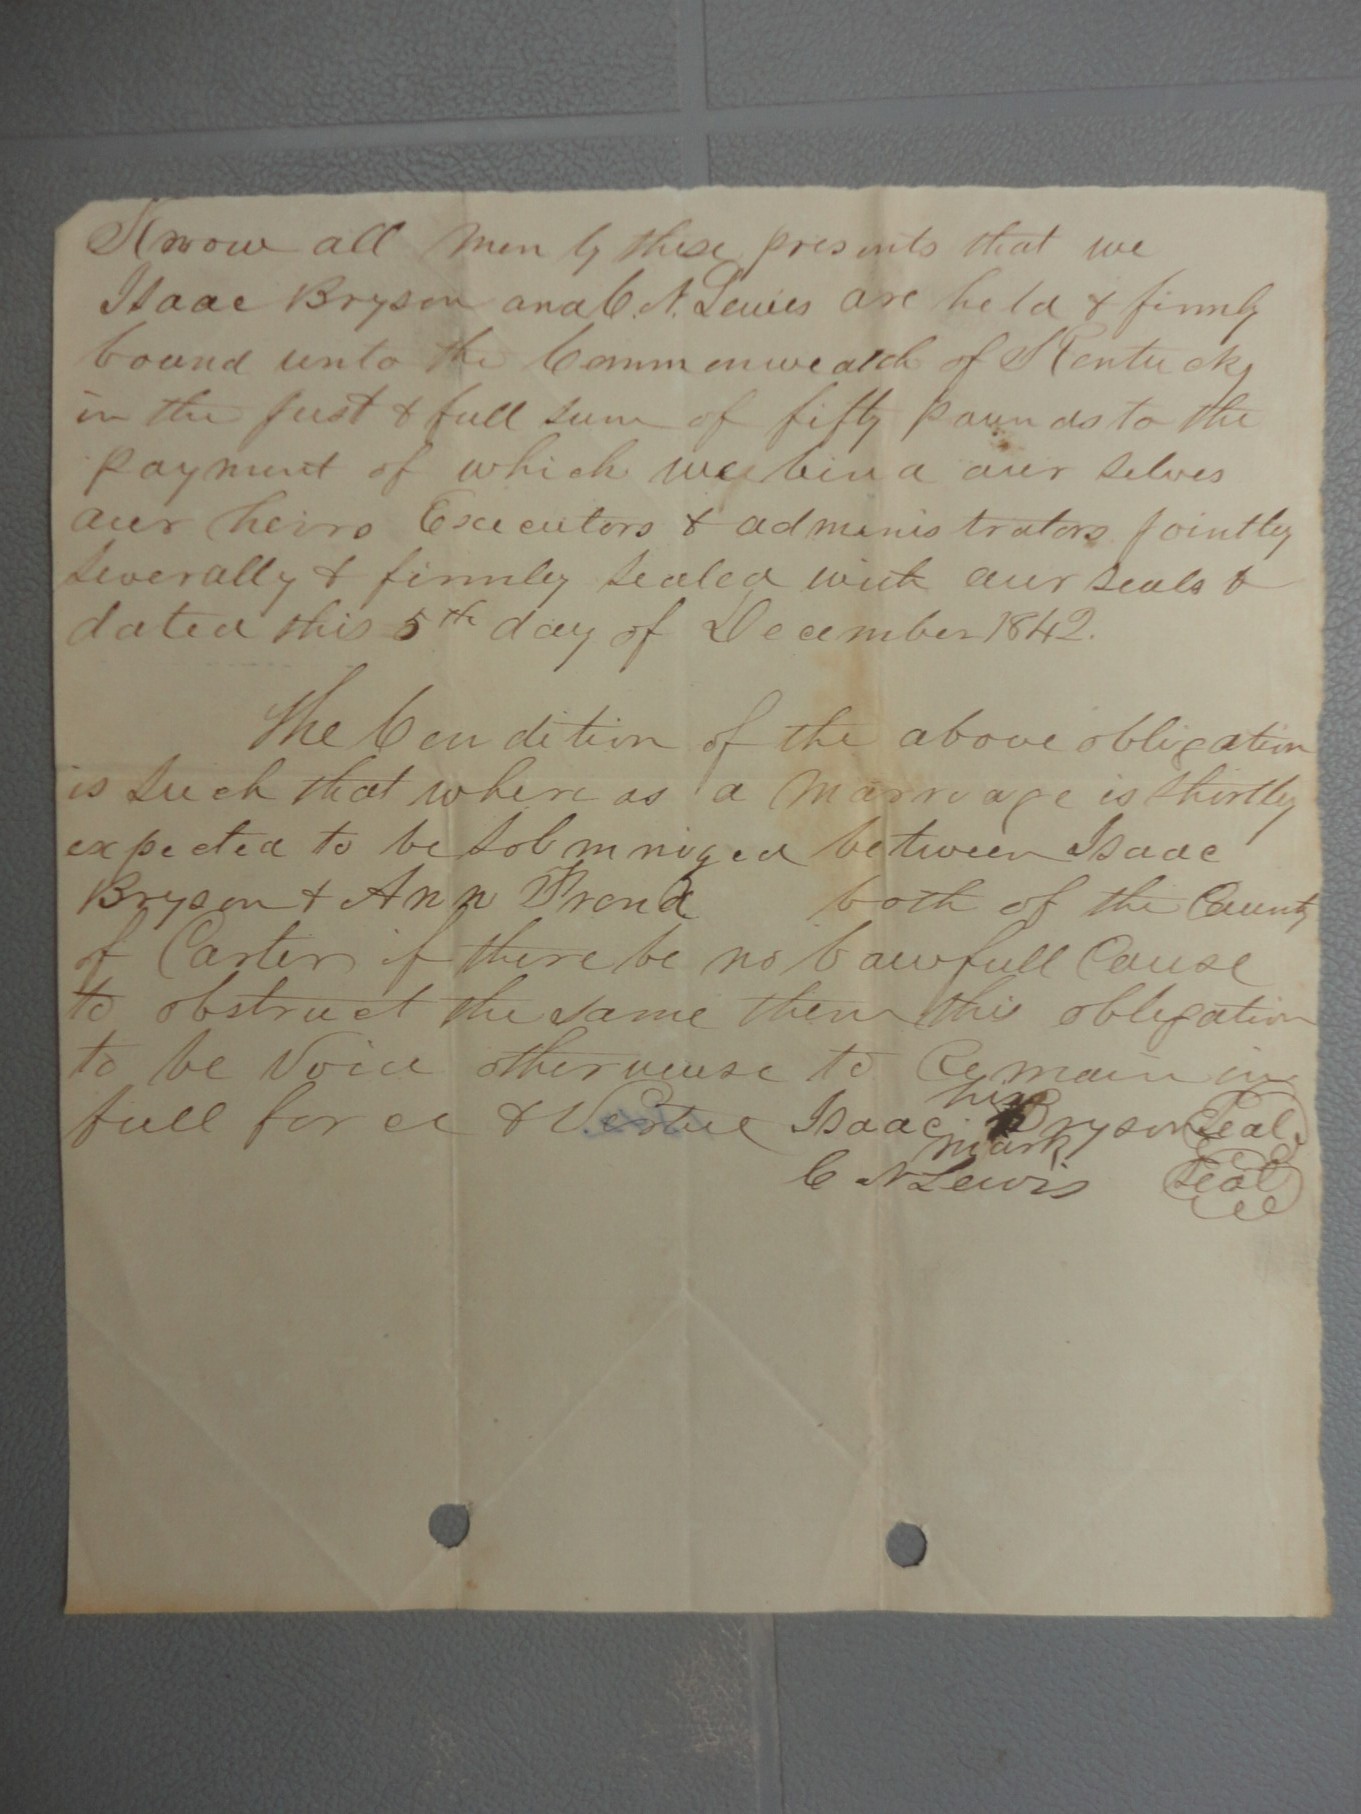 Know all men by these presents that we
Isaac Bryson and C. N. Lewis are held & firmly
bound unto the Commonwealth of Kentucky
in the just & full sum of fifty pounds to the
payment of which we bind our selves
our heirs Executors & administrators jointly
severally & firmly sealed with our seals &
dated this 5th day of December 1842.
The Condition of the above obligation
is such that where as a marriage is shortly
expected to be solemnized between Isaac
Bryson & Ann both of the County
of Carter if there be no lawfull Cause
to obstruct the same then this obligation
to be Void otherwise to Remain in
full force & Vertue Isaac his mark Bryson Seal
C N Lewis Seal